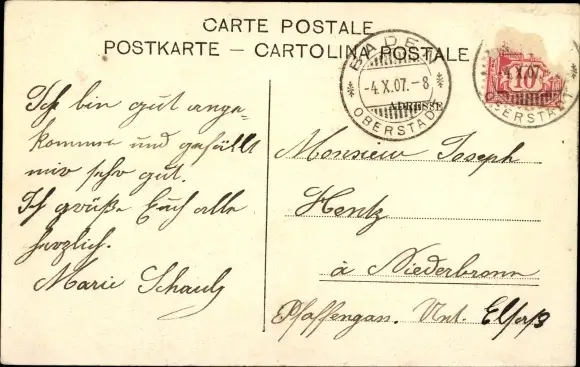 CARTE POSTALE
POSTKARTE – CARTOLINA POSTALE
BADEN
-4.X.07.-8
OBERSTADT
10
4.X.07.
OBERSTADT
ADRESSE
Ich bin gut ange-
kommen und gefällt
mir sehr gut.
Ich grüße Euch alle
herzlich.
Marie Schaub
Monsieur Joseph
Hentz
à Niederbronn
Pfaffengas. Unt. Elsaß